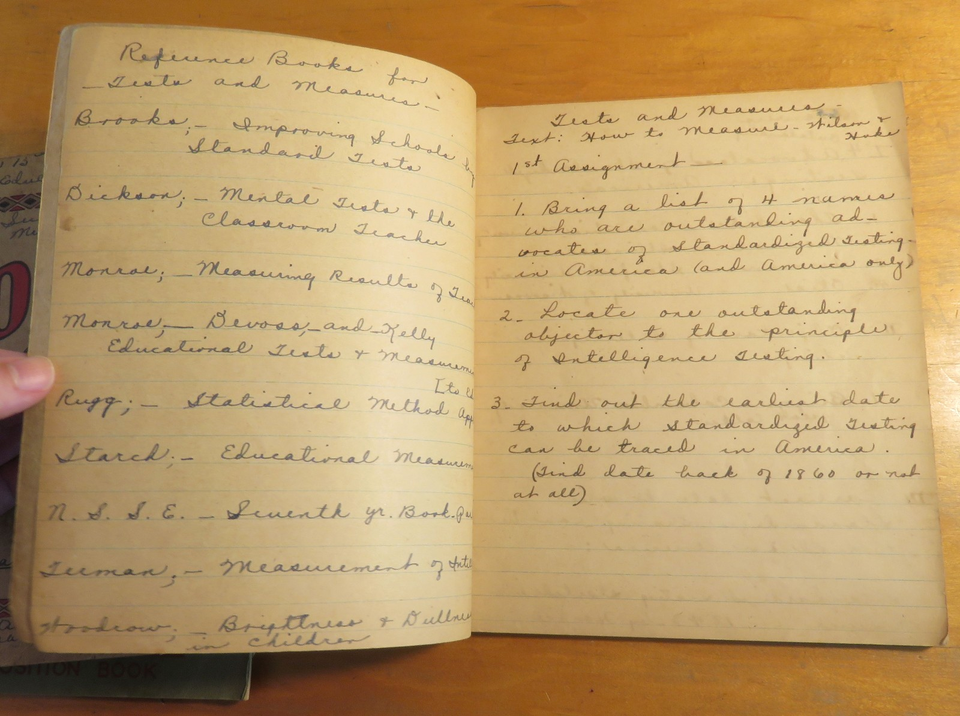 Reference Books for
Tests and Measures -
Brooks; - Improving Schools by
Standard Tests
Dickson; - Mental Tests & the
Classroom Teacher
Monroe; - Measuring Results of
Monroe, - Devoss, - and - Kelly
Educational Tests &
[to
Rugg; - Statistical Method
Starch; - Educational
N. S. S. E. - Seventh yr. Book.
Terman, - Measurement of
Woodrow; - Brightness &
in Children
Tests and Measures -
Text: How to Measure - Wilson &
Hoke
1st Assignment -
1. Bring a list of 4 names
who are outstanding ad-
vocates of Standardized Testing -
in America (and America only)
2. Locate one outstanding
objector to the principle
of Intelligence Testing.
3. Find out the earliest date
to which Standardized Testing
can be traced in America.
(Find date back of 1860 or not
at all)
BOOK